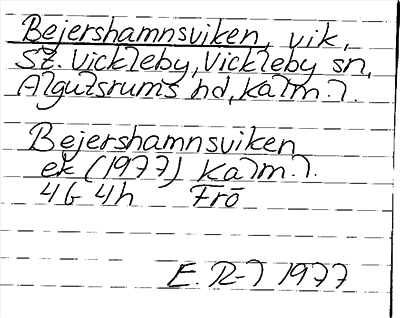 Bejershamnsviken, vik,
St. Vickleby, Vickleby sn,
Algutsrums hd, Kalm. l.
Bejershamnsviken
ek (1977) Kalm. l.
4G 4h Frö
E. R-l 1977